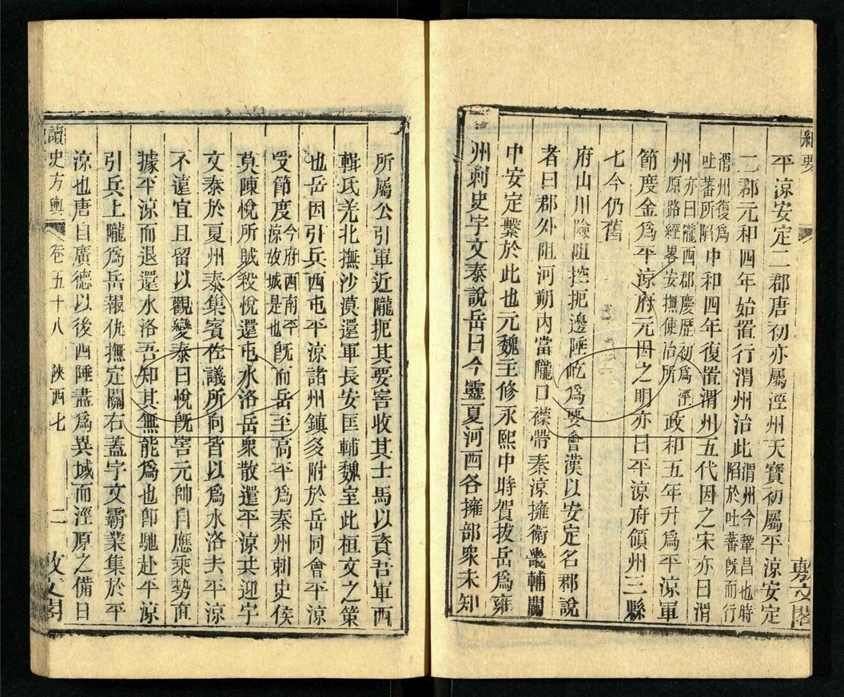 紀要
平涼安定二郡唐初亦屬涇州天寶初屬平涼安定
二郡元和四年始置行渭州治此渭州今鞏昌也時陷於吐蕃旣而行
渭州復爲吐蕃所陷中和四年復置渭州五代因之宋亦曰渭
州亦曰隴西郡慶歷初爲涇原路經畧安撫使治所政和五年升爲平涼軍
節度金爲平涼府元因之明亦曰平涼府領州三縣
七今仍舊
府山川險阻控扼邊陲屹爲要會漢以安定名郡說
者曰郡外阻河朔內當隴口襟帶秦涼擁衛畿輔關
中安定繫於此也元魏主修永熙中時賀拔岳爲雍
州刺史宇文泰說岳曰今靈夏河西各擁部衆未知
敷文閣
所屬公引軍近隴扼其要害收其士馬以資吾軍西
輯氐羌北撫沙漠還軍長安匡輔魏室此桓文之策
也岳因引兵西屯平涼諸州鎮多附於岳同會平涼
受節度今府西南平涼故城是也旣而岳至高平爲秦州刺史侯
莫陳悅所賊殺悅還屯水洛岳衆散還平涼共迎宇
文泰於夏州泰集賓佐議所向皆以爲水洛去平涼
不遠宜且留以觀變泰曰悅旣害元帥自應乘勢直
據平涼而退還水洛吾知其無能爲也卽馳赴平涼
引兵上隴爲岳報仇撫定關右蓋宇文霸業集於平
涼也唐自廣德以後西陲盡爲異域而涇原之備日
讀史方輿
卷五十八
陝西七
二
敷文閣